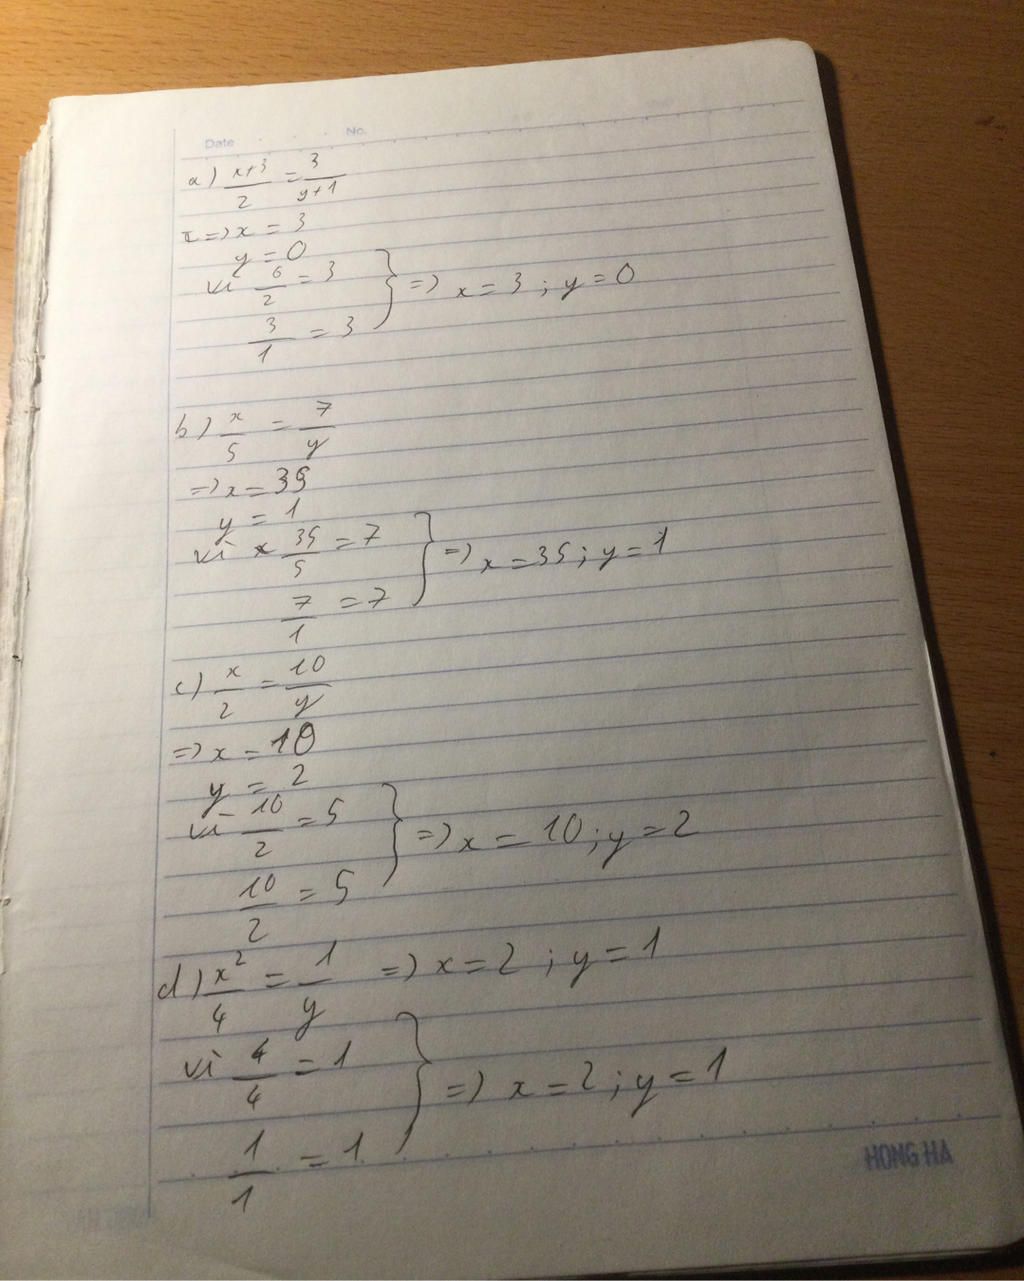 Date No.
a) x+3/2 = 3/y+1
=> x = 3
y = 0
vì 6/2 = 3
3/1 = 3 } => x = 3 ; y = 0
b) x/5 = 7/y
=> x = 35
y = 1
vì 35/5 = 7
7/1 = 7 } => x = 35 ; y = 1
c) x/2 = 10/y
=> x = 10
y = 2
vì 10/2 = 5
10/2 = 5 } => x = 10 ; y = 2
d) x²/4 = 1/y => x = 2 ; y = 1
vì 4/4 = 1
1/1 = 1 } => x = 2 ; y = 1
HONG HA